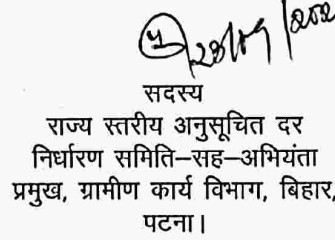 सदस्य
राज्य स्तरीय अनुसूचित दर
निर्धारण समिति–सह–अभियंता
प्रमुख, ग्रामीण कार्य विभाग, बिहार,
पटना।